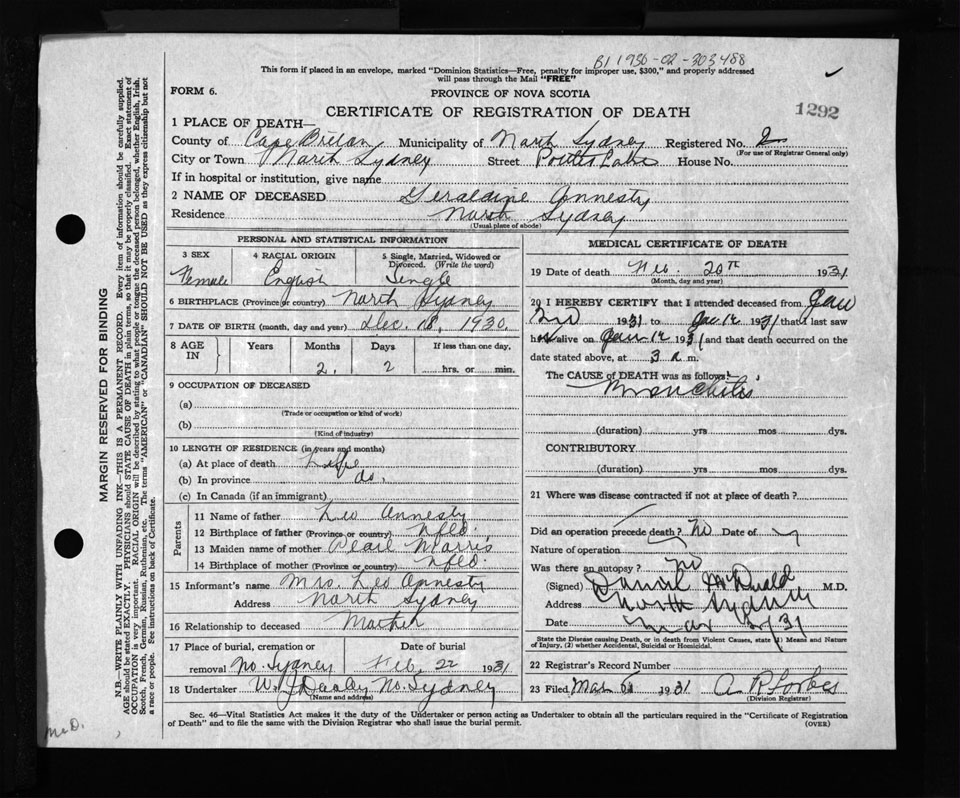 B1 1930-02-303488
This form if placed in an envelope, marked "Dominion Statistics—Free, penalty for improper use, $300," and properly addressed
will pass through the Mail "FREE"
FORM 6.
PROVINCE OF NOVA SCOTIA
CERTIFICATE OF REGISTRATION OF DEATH
1292
1 PLACE OF DEATH—
County of Cape Breton Municipality of North Sydney Registered No. 2
(For use of Registrar General only)
City or Town North Sydney Street House No.
If in hospital or institution, give name
2 NAME OF DECEASED Geraldine Annesty
Residence North Sydney
(Usual place of abode)
PERSONAL AND STATISTICAL INFORMATION
3 SEX Female
4 RACIAL ORIGIN English
5 Single, Married, Widowed or Divorced. (Write the word) Single
6 BIRTHPLACE (Province or country) North Sydney
7 DATE OF BIRTH (month, day and year) Dec. 18, 1930.
8 AGE IN Years Months 2. Days 2 If less than one day, hrs. or min.
9 OCCUPATION OF DECEASED
(a)
(Trade or occupation or kind of work)
(b)
(Kind of industry)
10 LENGTH OF RESIDENCE (in years and months)
(a) At place of death Life
(b) In province do.
(c) In Canada (if an immigrant)
Parents
11 Name of father Leo Annesty
12 Birthplace of father (Province or country) Nfld.
13 Maiden name of mother Pearl Morris
14 Birthplace of mother (Province or country) Nfld.
15 Informant's name Mrs. Leo Annesty
Address North Sydney
16 Relationship to deceased Mother
17 Place of burial, cremation or removal No. Sydney
Date of burial Feb. 22 1931
18 Undertaker W. J. Dooley No. Sydney
(Name and address)
MEDICAL CERTIFICATE OF DEATH
19 Date of death Feb. 20th 1931
(Month, day and year)
20 I HEREBY CERTIFY that I attended deceased from Jan
1931 to Jan 14 1931 that I last saw
h alive on Jan 14 1931 and that death occurred on the
date stated above, at 3 a m.
The CAUSE of DEATH was as follows:
Bronchitis
(duration) yrs mos dys.
CONTRIBUTORY
(duration) yrs mos dys.
21 Where was disease contracted if not at place of death?
Did an operation precede death? No Date of
Nature of operation
Was there an autopsy? no
(Signed) Daniel McDonald M.D.
Address North Sydney
Date Mar 31
State the Disease causing Death, or in death from Violent Causes, state (1) Means and Nature
of Injury, (2) whether Accidental, Suicidal or Homicidal.
22 Registrar's Record Number
23 Filed Mar 1931 A R Forbes
(Division Registrar)
Sec. 46—Vital Statistics Act makes it the duty of the Undertaker or person acting as Undertaker to obtain all the particulars required in the "Certificate of Registration
of Death" and to file the same with the Division Registrar who shall issue the burial permit.
(OVER)
MARGIN RESERVED FOR BINDING
N.B.—WRITE PLAINLY WITH UNFADING INK—THIS IS A PERMANENT RECORD. Every item of information should be carefully supplied.
AGE should be stated EXACTLY. PHYSICIANS should STATE CAUSE OF DEATH in plain terms, so that it may be properly classified. Exact statement of
OCCUPATION is very important. RACIAL ORIGIN will be described by stating to what people or tongue the deceased person belonged, whether English, Irish,
Scotch, French, German, Russian, Ruthenian, etc. The terms "AMERICAN" or "CANADIAN" SHOULD NOT BE USED as they express citizenship but not
a race or people. See instructions on back of Certificate.
McD.